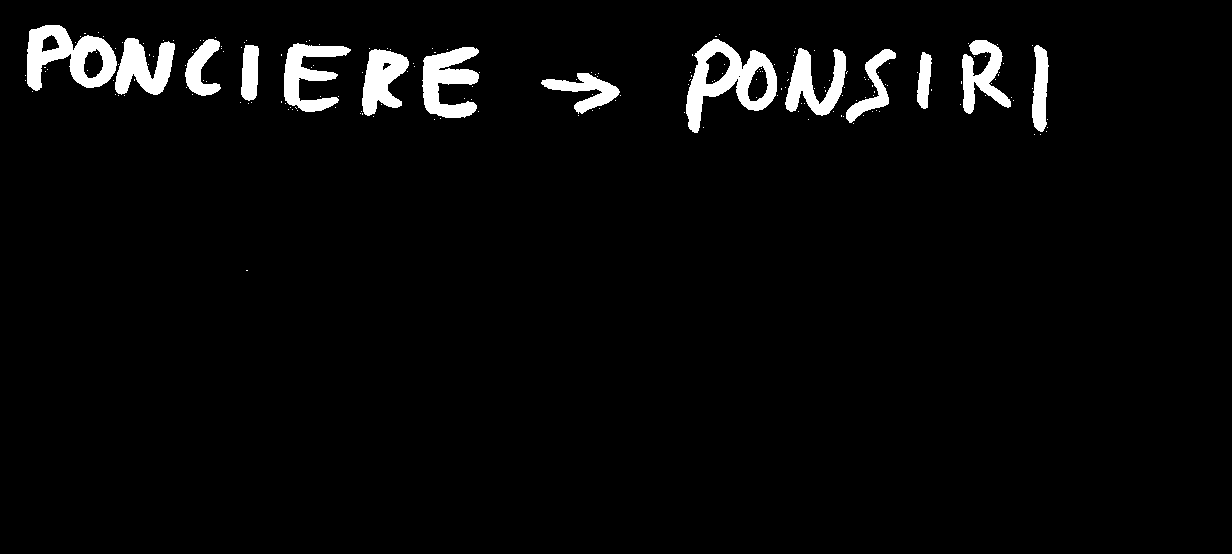 PONCIERE → PONSIRI